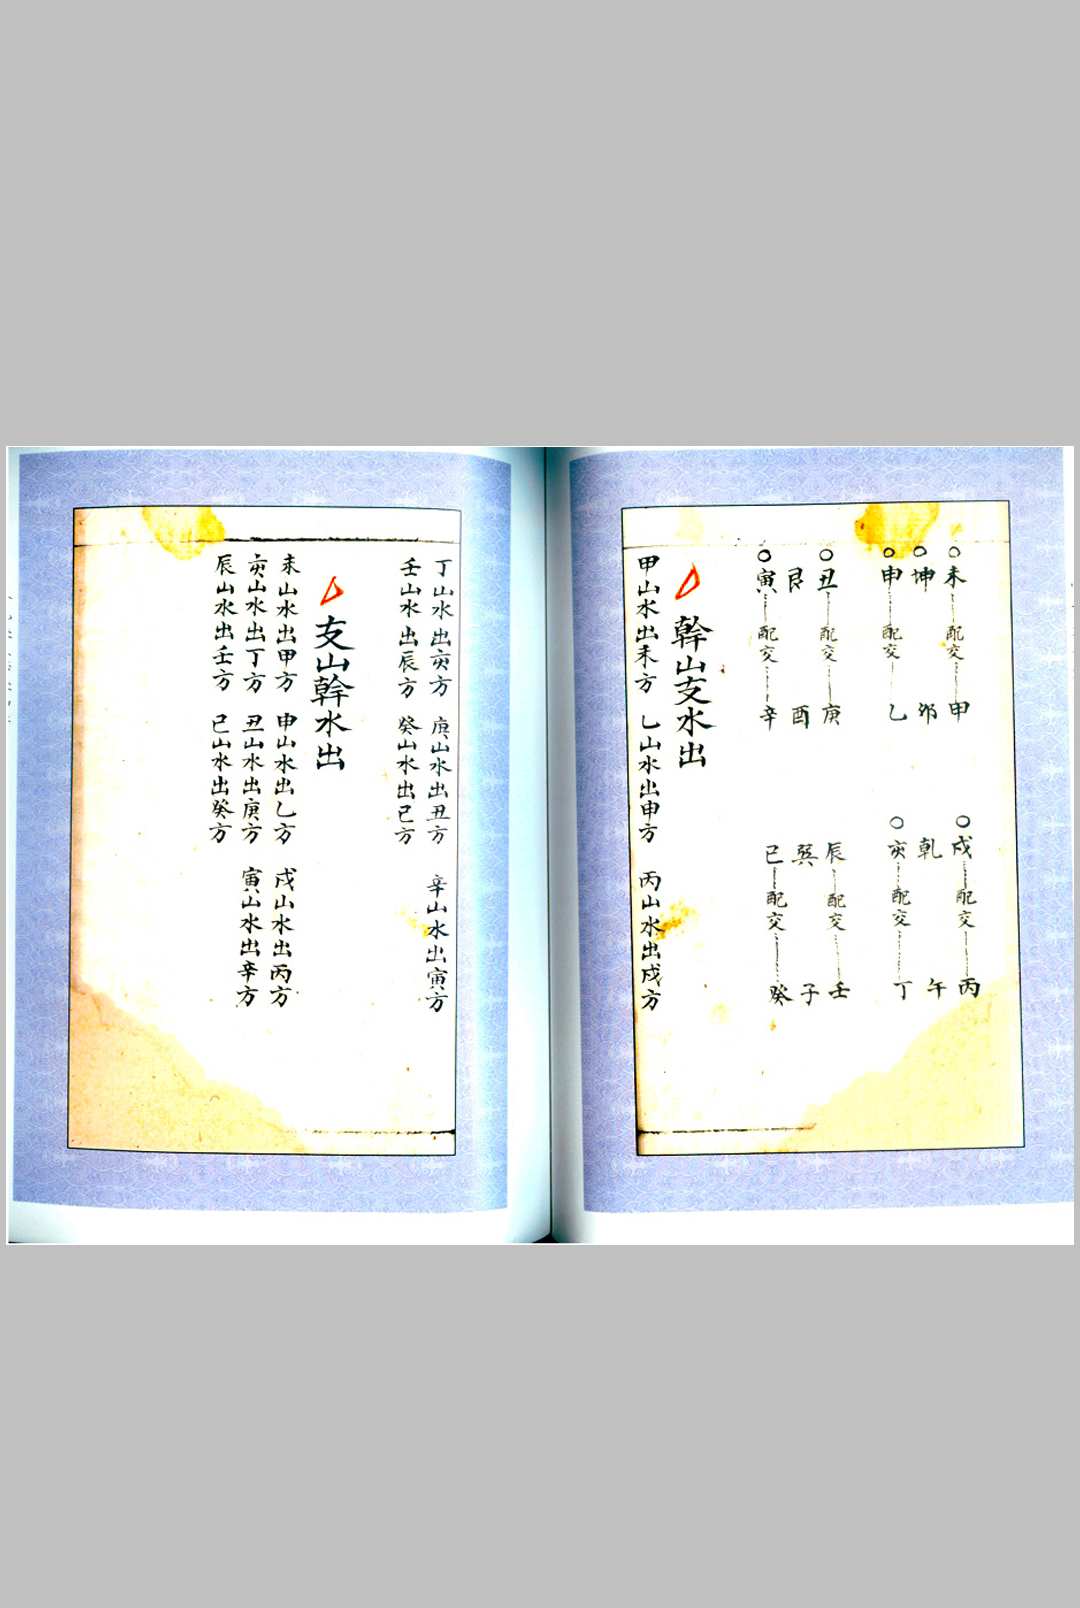 ○未配交甲
○坤 卯
○申配交乙
○丑配交庚
艮 酉
○寅配交辛
○戌配交丙
乾 午
○亥配交丁
辰配交壬
巽 子
巳配交癸
幹山支水出
甲山水出未方 乙山水出申方 丙山水出戌方
丁山水出亥方 庚山水出丑方 辛山水出寅方
壬山水出辰方 癸山水出巳方
支山幹水出
未山水出甲方 申山水出乙方 戌山水出丙方
亥山水出丁方 丑山水出庚方 寅山水出辛方
辰山水出壬方 巳山水出癸方